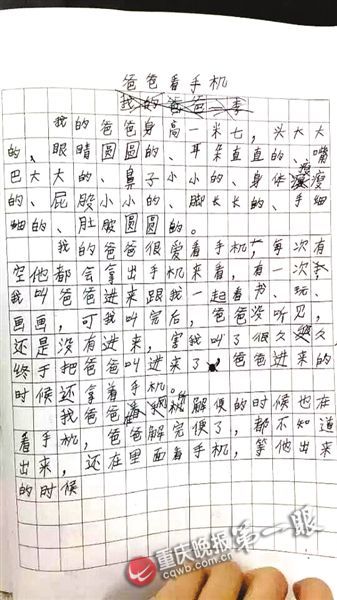 爸爸看手机
我的爸爸身高一米七,头大大
的、眼睛圆圆的、耳朵直直的、嘴
巴大大的、鼻子小小的、身体瘦瘦
的、屁股小小的、脚长长的、手细
细的、肚股圆圆的。
我的爸爸很爱看手机,每次有
空他都会拿出手机来看,有一次,
我叫爸爸进来跟我一起看书、玩、
画画,可我叫完后,爸爸没听见,
还是没有进来,害我叫了很久
久
终于把爸爸叫进来了。爸爸进来的
时候还拿着手机。
我爸爸解便的时候也在
看手机,爸爸解完便了,都不知道
出来,还在里面看手机,等他出来
的时候
重庆晚报第一眼
cqwb.com.cn